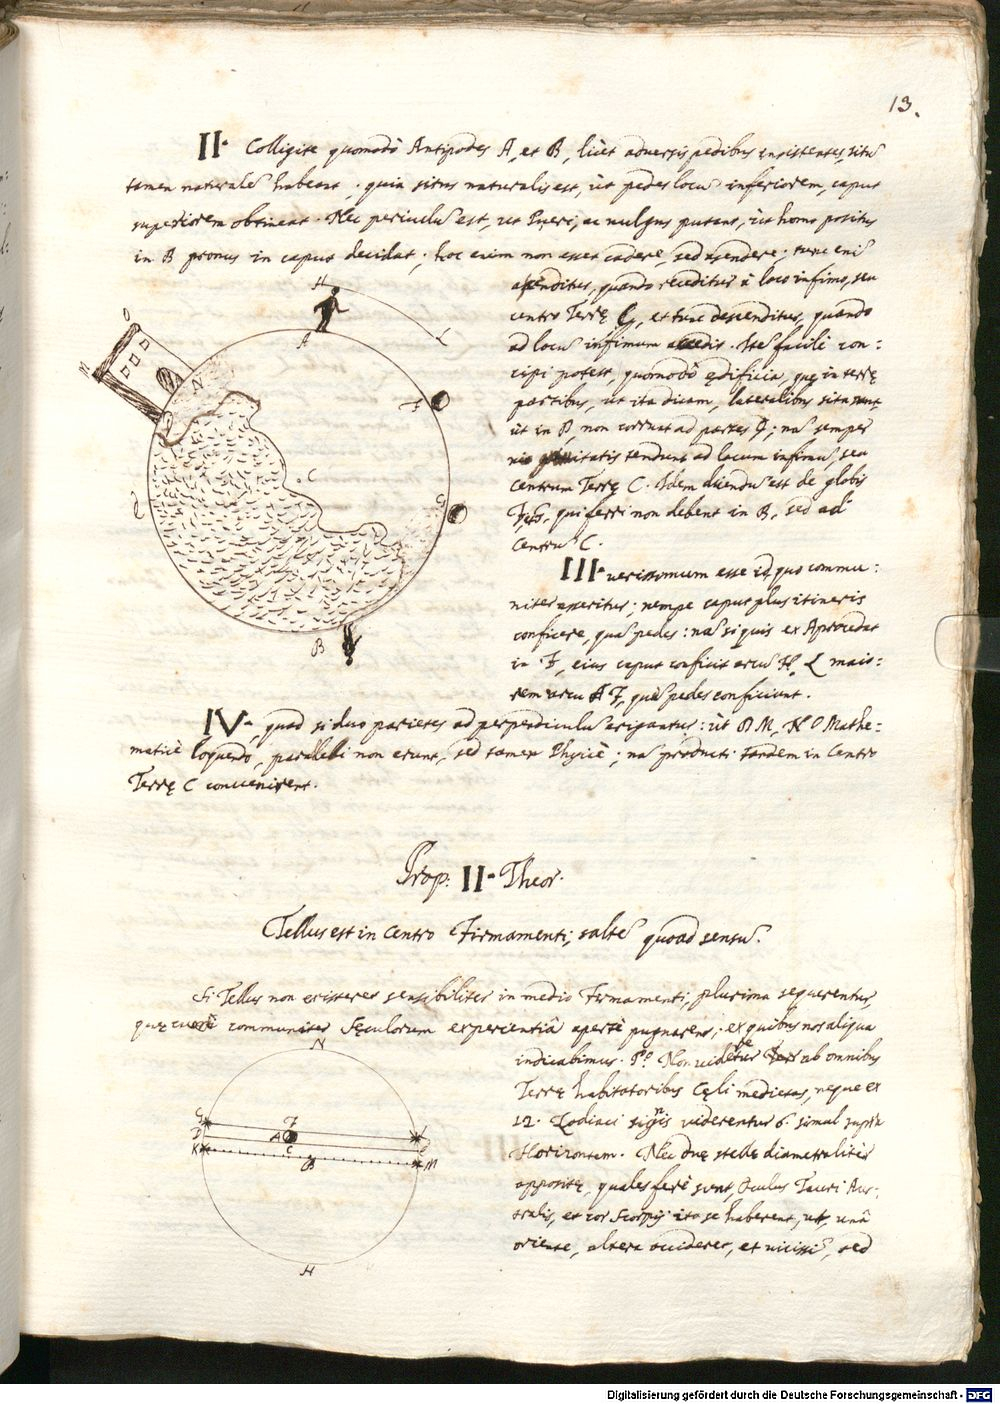 13.
II. Colligite quomodò Antipodes A, et B, licèt adversis pedibus insistentes, situ
tamen naturale habeant. quia situs naturalis est, ùt pedes locu inferiorem, caput
superiorem obtineat. Nec periculu est, ut pueri, ac vulgus putant, ùt homo positus
in B pronus in caput decidat; hoc enim non esset cadere, sed ascendere; tunc eni
ascenditur, quando receditur à loco infimo, seu
centro Terrę C, et tunc descenditur, quando
ad locu infimum accedit. Ite facilè con=
cipi potest, quomodò ędificia, quę in terrę
partibus, ut ita dicam, lateralibus sita sunt,
ùt in D, non corruat ad partes Q; na semper
gravitatis tendunt ad locum infimu, seu
centrum Terrę C. Idem dicendu est de globis
F, et G, qui ferri non debent in B, sed ad
Centru C.
III. verissimum esse id quo commu=
niter asseritur; nempe caput plus itineris
conficere, qua pedes: na si quis ex A procedat
in F, eius caput conficit arcu H, L maio=
rem arcu A F, que pedes conficiunt.
IV., quod si duo parietes ad perpendiculu erigantur: ùt D M, N O Mathe=
maticè loquendo, paralleli non erunt, sed tamen Physicè; na producti tandem in Centro
Terrę C convenirent.
H
A
L
O
M
N
D
F
C
G
Q
B
Prop: II. Theor.
Tellus est in Centro Firmamenti; salte quoad sensu.
Si Tellus non existeret sensibiliter in medio Firmamenti, plurima sequerentur,
quę communiter Sęculorum experientiâ apertè pugnarent; ex quibus nos aliqua
indicabimus. Pº Non videretur ab omnibus
Terrę habitatoribus Cęli medietas, neque ex
12. Zodiaci signis viderentur 6. simul supra
Horizontem. Nec duę stellę diametraliter
oppositę, quales ferè sunt, Oculus Tauri Aus=
tralis, et cor Scorpij ita se haberent, ut, unâ
oriente, altera occideret, et vicissi, sed
N
G
F
D
A
K
C
B
M
H
Digitalisierung gefördert durch die Deutsche Forschungsgemeinschaft - DFG